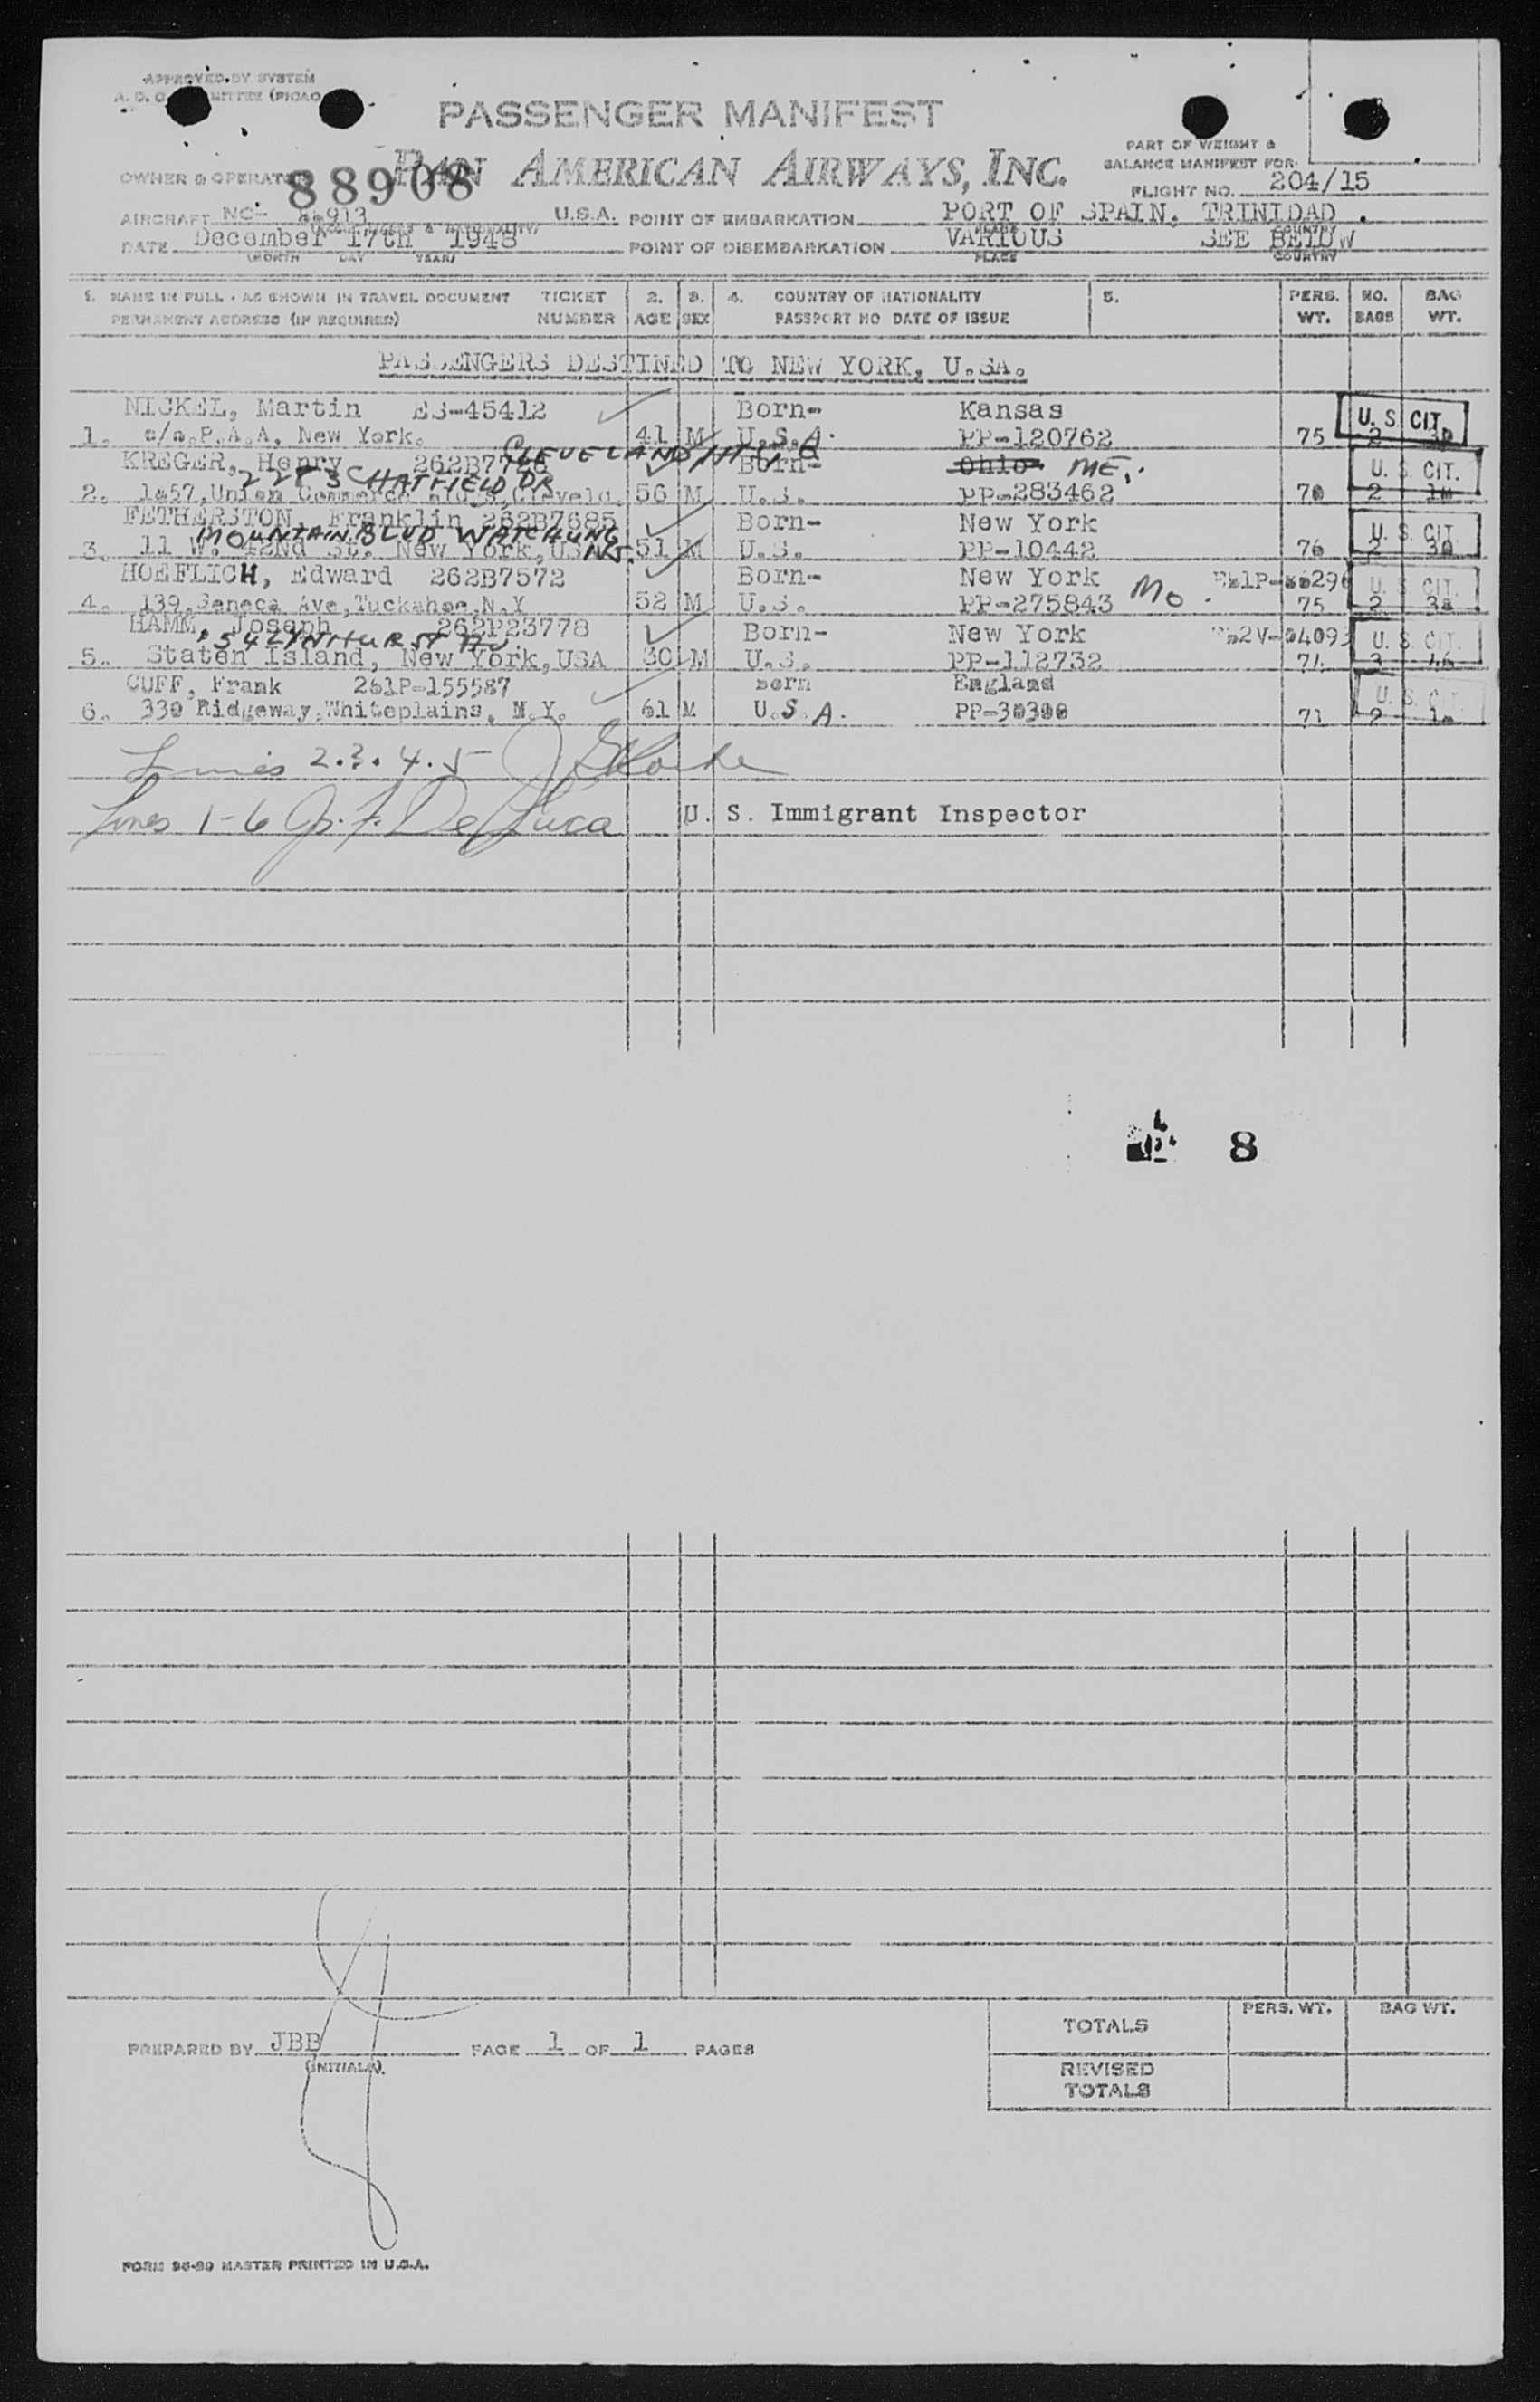 APPROVED BY SYSTEM
PASSENGER MANIFEST
PAN AMERICAN AIRWAYS, INC.
88908
PART OF WEIGHT &
BALANCE MANIFEST FOR
FLIGHT NO. 204/15
OWNER & OPERATOR
AIRCRAFT NC- 913 U.S.A. POINT OF EMBARKATION PORT OF SPAIN, TRINIDAD.
DATE December 17th 1948 POINT OF DISEMBARKATION VARIOUS SEE BELOW
(MONTH DAY YEAR) PLACE COUNTRY
1. NAME IN FULL - AS SHOWN IN TRAVEL DOCUMENT TICKET 2. 3. 4. COUNTRY OF NATIONALITY 5. PERS. NO. BAG
PERMANENT ADDRESS (IF REQUIRED) NUMBER AGE SEX PASSPORT NO DATE OF ISSUE WT. BAGS WT.
PASSENGERS DESTINED TO NEW YORK, U.SA.
NICKEL, Martin ES-45412 Born- Kansas U.S. CIT.
1. c/o.P.A.A, New York. 41 M U.S.A. PP-120762 75 2
CLEVELAND HTS, O
KREGER, Henry Born- Ohio ME. U.S. CIT.
2283 CHATFIELD DR
2. Union Commerce Cleveld. 56 M U.S. PP-283462 70 2
FETHERSTON, Franklin 262B7685 Born- New York U.S. CIT.
MOUNTAIN BLVD WATCHUNG NJ.
3. 11 W. 42nd St. New York, US 51 M U.S. PP-10442 76 2
HOEFLICH, Edward 262B7572 Born- New York Mo. U.S. CIT.
4. 139,Seneca Ave,Tuckahoe,N.Y 52 M U.S. PP-275843 75 2
HAMM, Joseph 262P23778 Born- New York U.S. CIT.
54 LYNHURST AV.
5. Staten Island, New York,USA 30 M U.S. PP-112732 74 3 46
CUFF, Frank 261P-155587 Born England U.S. CIT.
6. 330 Ridgeway,Whiteplains, N.Y. 61 M U.S.A. PP-30300 71 2
2.3.4.5
Lines 1-6 De Luca U. S. Immigrant Inspector
8
PERS. WT. BAG WT.
TOTALS
PREPARED BY JBB PAGE 1 OF 1 PAGES
(INITIALS)
REVISED
TOTALS
FORM 96-89 MASTER PRINTED IN U.S.A.